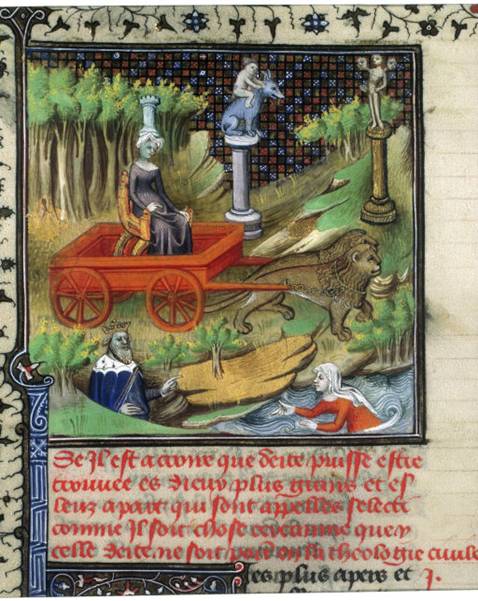 Se Il est a croire que deite puisse estre
trouuee es dieux plus grans et es
leuz a part qui sont appelles select
comme Il soit chose quen
celle deite ne soit pas en la theologie ciuile
les plus apers et